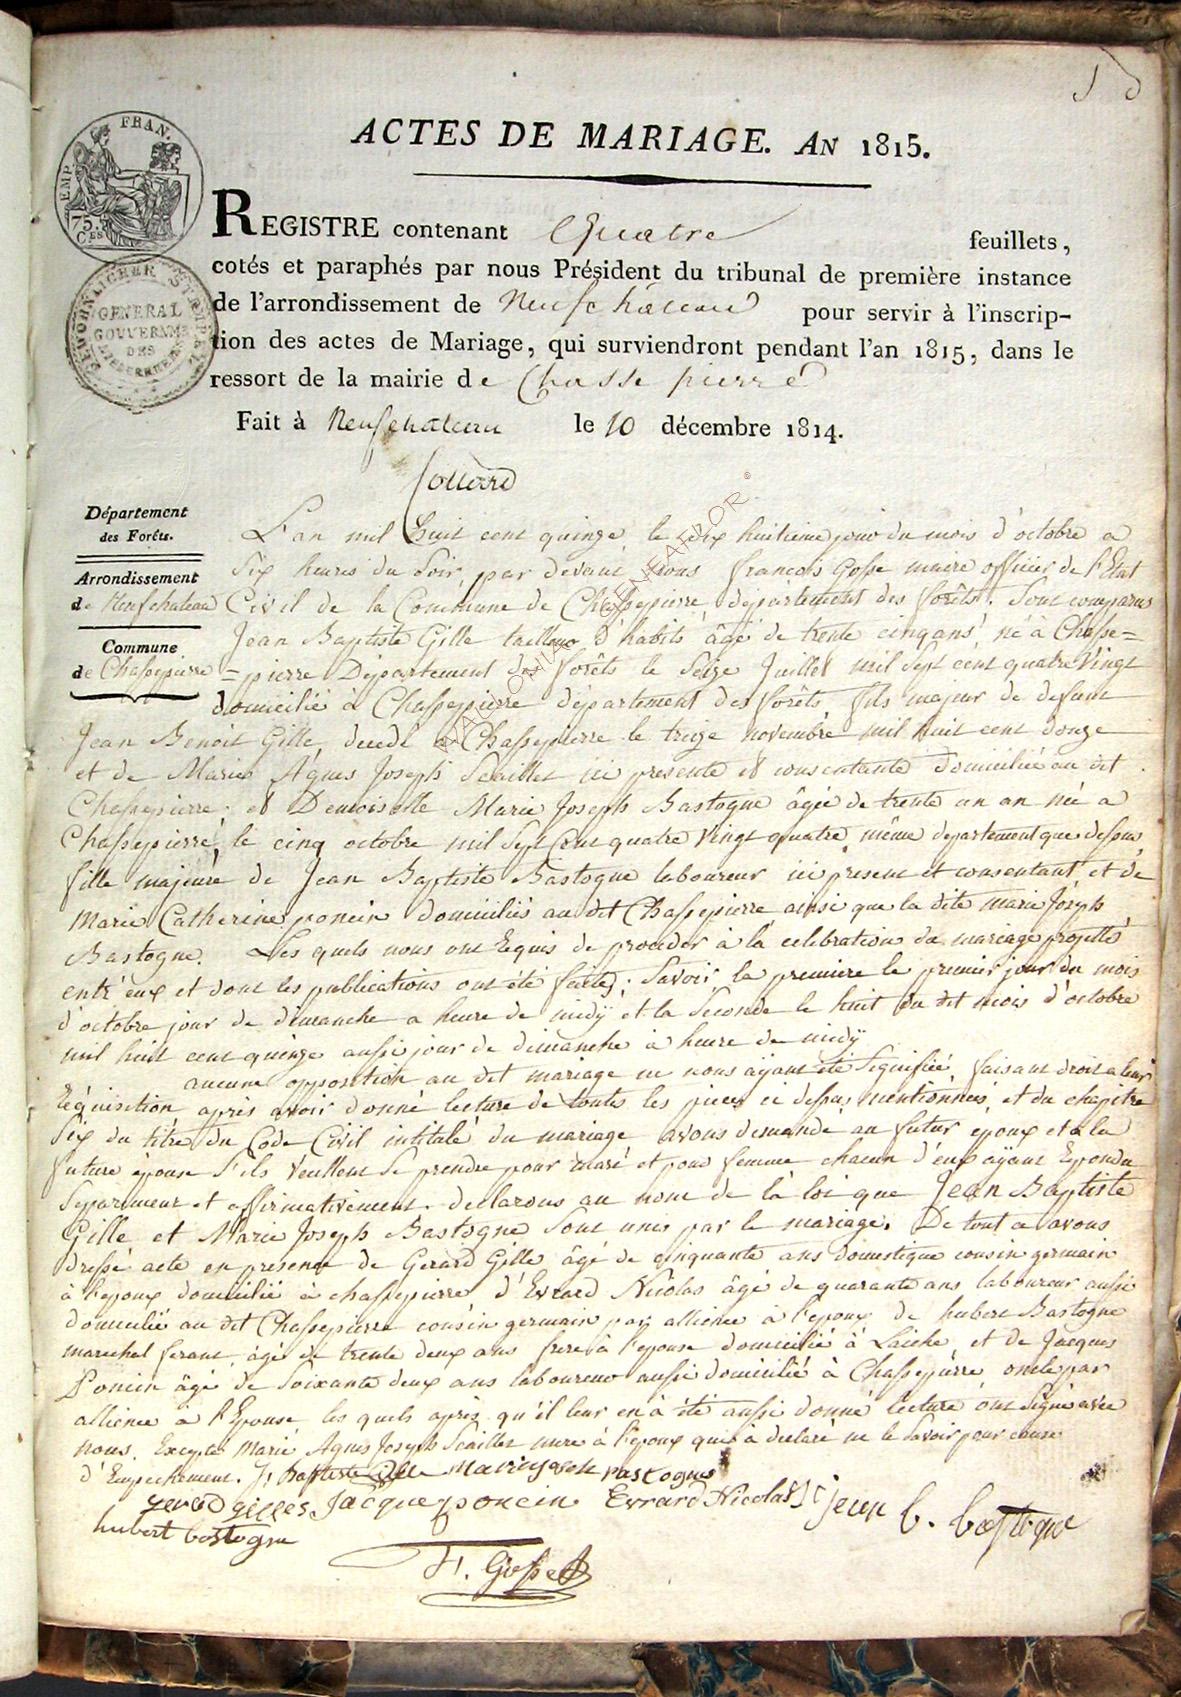 1
ACTES DE MARIAGE. AN 1815.
EMP. FRAN.
75. CES
GENERAL
GOUVERNMT
DES
REGISTRE contenant Quatre feuillets,
cotés et paraphés par nous Président du tribunal de première instance
de l'arrondissement de Neufchateau pour servir à l'inscrip-
tion des actes de Mariage, qui surviendront pendant l'an 1815, dans le
ressort de la mairie de Chassepierre
Fait à Neufchateau le 10 décembre 1814.
Collard
Département
des Forêts.
Arrondissement
de Neufchateau
Commune
de Chassepierre
L'an mil huit cent quinze le dix huitieme jour du mois d'octobre a
Six heures du Soir, par devant nous francois Gosse maire officier de l'Etat
Civil de la Commune de Chassepierre, département des forêts. Sont comparus
Jean Baptiste Gille tailleur d'habits âgé de trente cinq ans né à Chasse=
=pierre Département des forêts le Seize Juillet mil Sept cent quatre Vingt
domicilié à Chassepierre département des forêts, fils majeur de defunt
Jean Benoit Gille, decedé a Chassepierre le treize novembre mil huit cent douze
et de Marie Agnes Joseph Scaillet ici presente et consentante domiciliée au dit
Chassepierre; et Demoiselle Marie Joseph Bastogne âgée de trente un an née a
Chassepierre, le cinq octobre mil Sept Cent quatre Vingt quatre, même departement que dessus
fille majeure de Jean Baptiste Bastogne laboureur ici present et consentant et de
Marie Catherine poncin domiciliés au dit Chassepierre ainsi que la dite marie Joseph
Bastogne. Les quels nous ont Requis de proceder à la celebration du mariage projetté
entr'eux et dont les publications ont été faites; Savoir la premiere le premier jour du mois
d'octobre jour de dimanche a heure de midÿ et la Seconde le huit du dit mois d'octobre
mil huit cent quinze aussi jour de dimanche à heure de midÿ
aucune opposition au dit mariage ne nous aÿant été Signifiée, faisant droit a leur
Réquisition après avoir donné lecture de toutes les pieces ci dessus mentionnées, et du chapitre
Six du titre du Code Civil intitulé du mariage avons demandé au futur epoux et a la
future épouse S'ils Veullent Se prendre pour mari et pour femme chacun d'eux aÿant Repondu
Separement et affirmativement. declarons au nom de la loi que Jean Baptiste
Gille et Marie Joseph Bastogne Sont unis par le mariage. De tout ce avons
dressé acte en presence de Gerard Gille âgé de cinquante ans domestique cousin germain
à l'epoux domicilié à chassepierre d'Evrard Nicolas âgé de quarante ans laboureur aussi
domicilié au dit Chassepierre cousin germain par allience à l'epoux de hubert Bastogne
marechal ferant, âgé de trente deux ans frere à l'epouse domicilié à Laiche et de Jacques
Poncin âgé de Soixante deux ans laboureur aussi domicilié à Chassepierre oncle par
allience a l'Epouse, les quels après qu'il leur en à été aussi donné lecture ont Signé avec
nous. Excepté Marie Agnes Joseph Scaillet mere à l'epoux qui à declaré ne le Savoir pour cause
d'Empechement. J, baptiste Gille mariejosehe bastogne
gerard gilles Jacque poncin Evrard Nicolas jean b. bastogne
hubert bastogne
F. Gosse